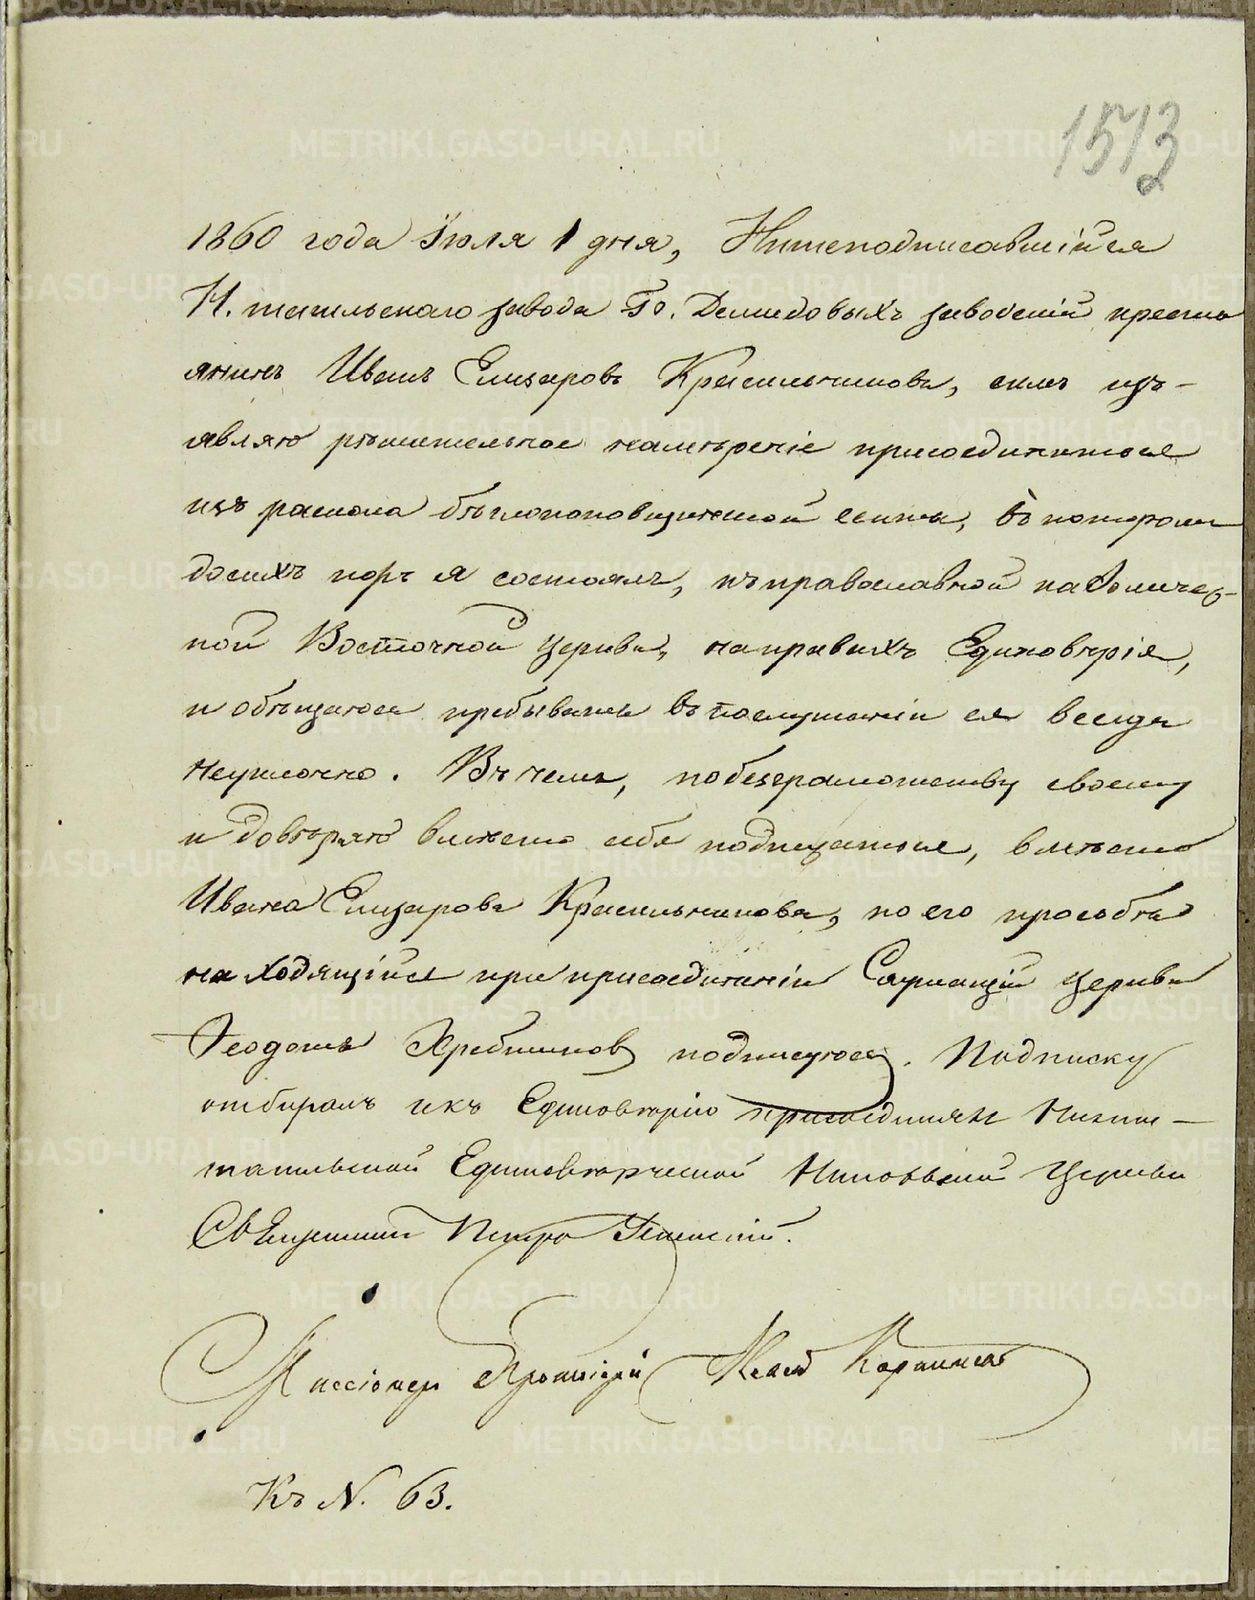 1513
1860 года Іюля 1 дня, Нижеподписавшійся
Н. тагильскаго завода Гг. Демидовыхъ заводскій кресть
янинъ Иванъ Елизаровъ Красильниковъ, симъ изъ-
являю рѣшительное намѣреніе присоединиться
изъ раскола бѣглопоповщинской секты, въ которой
досихъ поръ я состоялъ, къ православной каѳоличес-
кой Восточной церкви, направилахъ Единовѣрія,
и обѣщаюсь пребывать въ послушаніи ея всегда
неуклонно. Въ чемъ, по безграмотству своему
и довѣряю вмѣсто себя подписаться, вмѣсто
Ивана Елизарова Красильникова, по его прозьбѣ
находящійся при присоединеніи церкви
Ѳеодотъ Хребтиковъ подписуюсь. Подписку
отбиралъ и къ Единовѣрію присоединялъ Нижне-
тагильской Единовѣрческой Никольской Церкви
Священникъ Петръ
Миссіонеръ Протоіерей
Къ N. 63.
METRIKI.GASO-URAL.RU